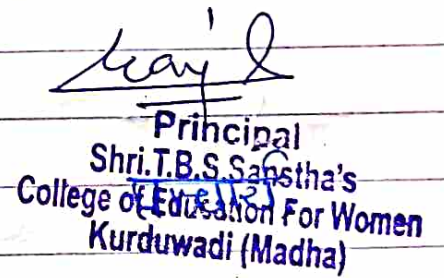 Principal
Shri.T.B.S.Sanstha's
College of Education For Women
Kurduwadi (Madha)